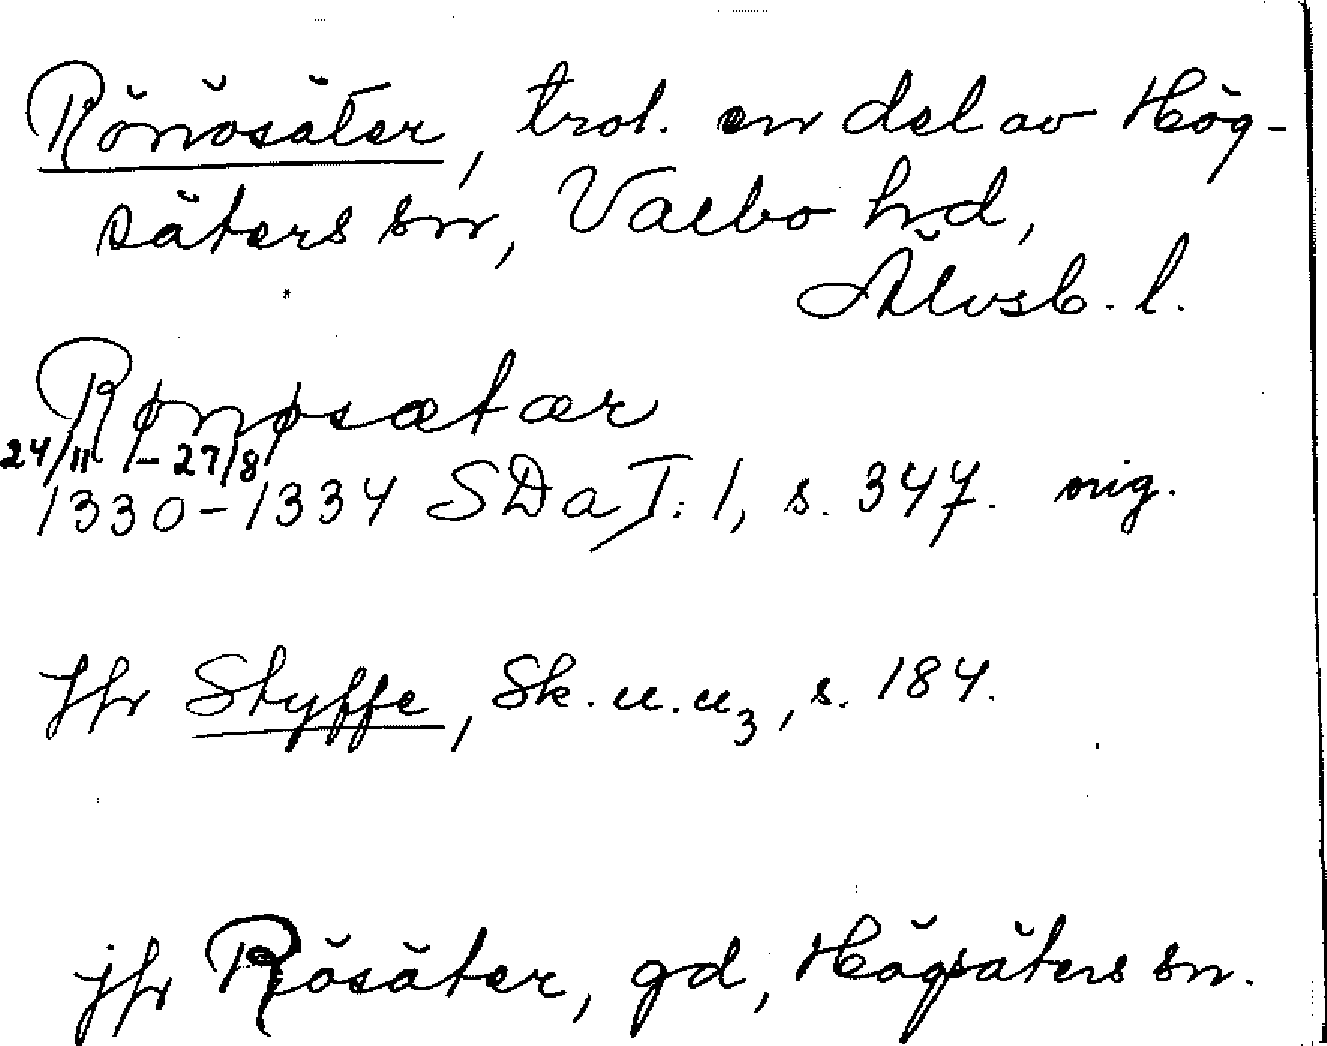 Rönösäter, trol. en del av Hög-
säters sn, Valbo hd,
Älvsb. l.
Rønøsætær
24/11 – 27/8
1330–1334 SDa I: 1, s. 347. orig.
Jfr Styffe, Sk. u. u3, s. 184.
jfr Rösäter, gd, Högsäters sn.